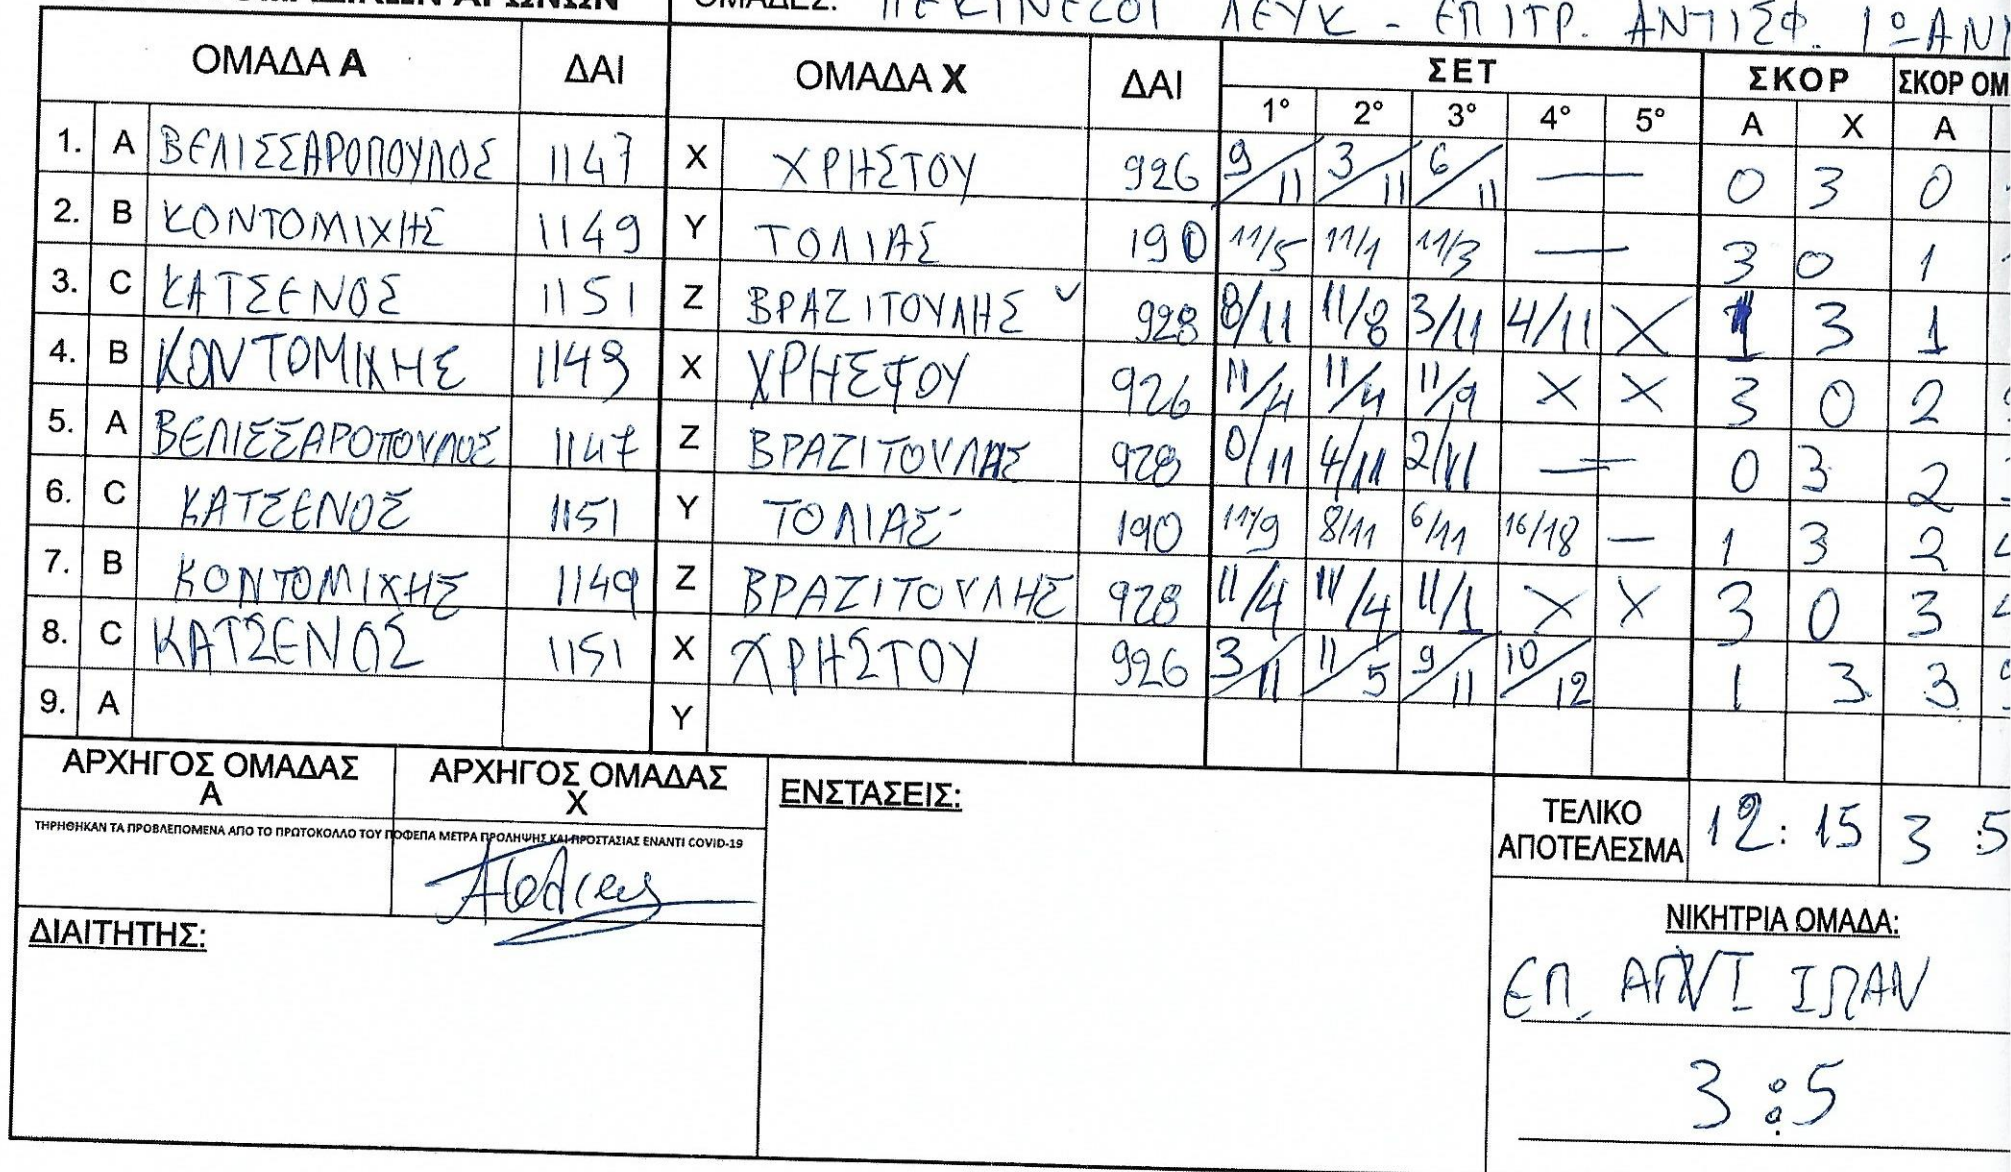 ΟΜΑΔΕΣ: ΠΕΚΙΝΕΖΟΙ ΛΕΥΚ - ΕΠΙΤΡ. ΑΝΤΙΣΦ. ΙΩΑΝ
ΟΜΑΔΑ Α ΔΑΙ ΟΜΑΔΑ Χ ΔΑΙ ΣΕΤ ΣΚΟΡ ΣΚΟΡ ΟΜ
1° 2° 3° 4° 5° Α Χ Α
1. A ΒΕΛΙΣΣΑΡΟΠΟΥΛΟΣ 1147 X ΧΡΗΣΤΟΥ 926 9/11 3/11 6/11 — 0 3 0
2. B ΚΟΝΤΟΜΙΧΗΣ 1149 Y ΤΟΛΙΑΣ 190 11/5 11/1 11/3 — 3 0 1
3. C ΚΑΤΣΕΝΟΣ 1151 Z ΒΡΑΖΙΤΟΥΛΗΣ ✓ 928 8/11 11/8 3/11 4/11 X 1 3 1
4. B ΚΟΝΤΟΜΙΧΗΣ 1149 X ΧΡΗΣΤΟΥ 926 11/4 11/4 11/9 X X 3 0 2
5. A ΒΕΛΙΣΣΑΡΟΠΟΥΛΟΣ 1147 Z ΒΡΑΖΙΤΟΥΛΗΣ 928 0/11 4/11 2/11 — 0 3 2
6. C ΚΑΤΣΕΝΟΣ 1151 Y ΤΟΛΙΑΣ 190 11/9 8/11 6/11 16/18 — 1 3 2
7. B ΚΟΝΤΟΜΙΧΗΣ 1149 Z ΒΡΑΖΙΤΟΥΛΗΣ 928 11/4 11/4 11/1 X X 3 0 3
8. C ΚΑΤΣΕΝΟΣ 1151 X ΧΡΗΣΤΟΥ 926 3/11 11/5 9/11 10/12 1 3 3
9. A Y
ΑΡΧΗΓΟΣ ΟΜΑΔΑΣ Α ΑΡΧΗΓΟΣ ΟΜΑΔΑΣ Χ ΕΝΣΤΑΣΕΙΣ:
ΤΕΛΙΚΟ ΑΠΟΤΕΛΕΣΜΑ 12:15 3:5
ΤΗΡΗΘΗΚΑΝ ΤΑ ΠΡΟΒΛΕΠΟΜΕΝΑ ΑΠΟ ΤΟ ΠΡΩΤΟΚΟΛΛΟ ΤΟΥ ΠΟΦΕΠΑ ΜΕΤΡΑ ΠΡΟΛΗΨΗΣ ΚΑΙ ΠΡΟΣΤΑΣΙΑΣ ΕΝΑΝΤΙ COVID-19
ΔΙΑΙΤΗΤΗΣ:
ΝΙΚΗΤΡΙΑ ΟΜΑΔΑ:
ΕΠ. ΑΝΤΙ ΙΩΑΝ
3:5